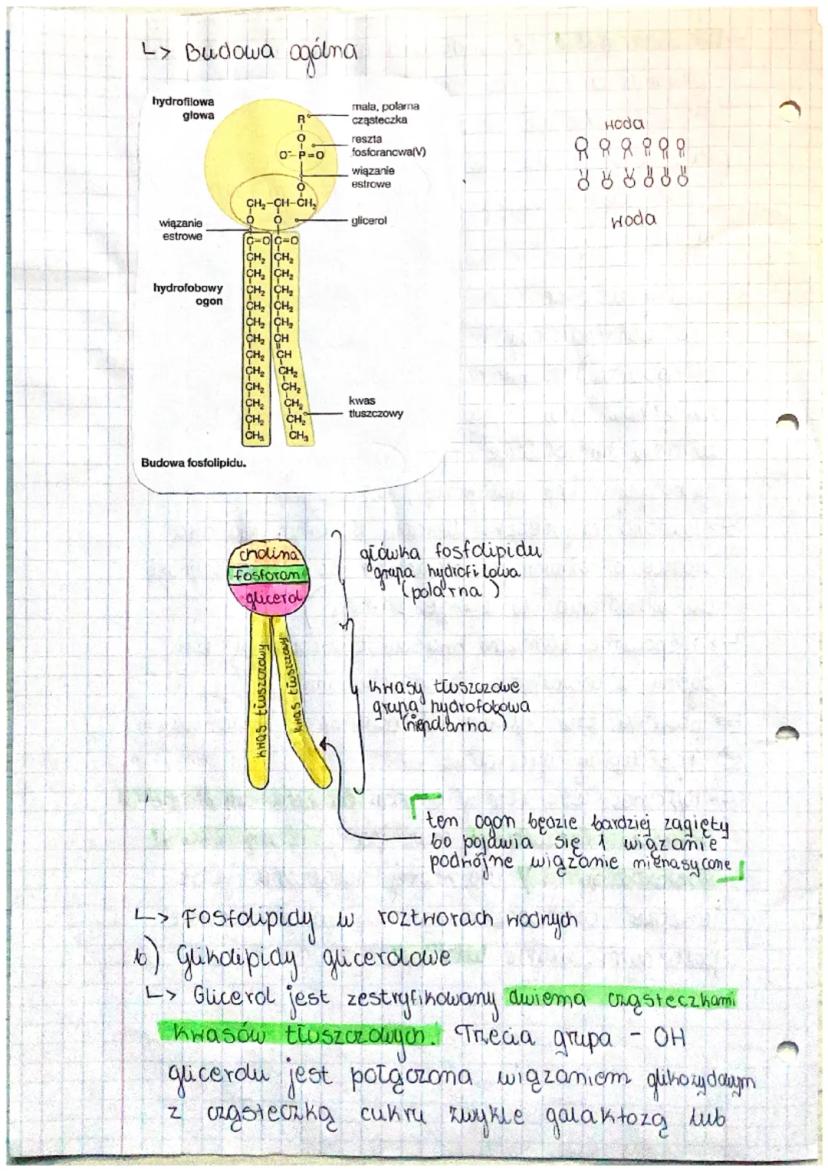 ↳ Budowa ogólna
hydrofilowa
głowa
R
mała, polarna
cząsteczka
O
reszta
fosforanowa(V)
O⁻-P=O
wiązanie
estrowe
O
CH₂-CH-CH₂
wiązanie
estrowe
O O
glicerol
C=O C=O
CH₂ CH₂
CH₂ CH₂
hydrofobowy
ogon
CH₂ CH₂
CH₂ CH₂
CH₂ CH₂
CH₂ CH
CH₂ CH
CH₂ CH₂
CH₂ CH₂
CH₂ CH₂
CH₂ CH₂
CH₃ CH₃
kwas
tłuszczowy
Budowa fosfolipidu.
woda
woda
cholina
fosforan
glicerol
kwas tłuszczowy
kwas tłuszczowy
główka fosfolipidu
grupa hydrofilowa
(polarna)
kwasy tłuszczowe
grupa hydrofobowa
(niepolarna)
ten ogon będzie bardziej zagięty
bo pojawia się 1 wiązanie
podwójne wiązanie nienasycone
↳ Fosfolipidy w roztworach wodnych
b) Glikolipidy glicerolowe
↳ Glicerol jest zestryfikowany dwiema cząsteczkami
kwasów tłuszczowych. Trzecia grupa - OH
glicerolu jest połączona wiązaniem glikozydowym
z cząsteczką cukru zwykle galaktozą lub